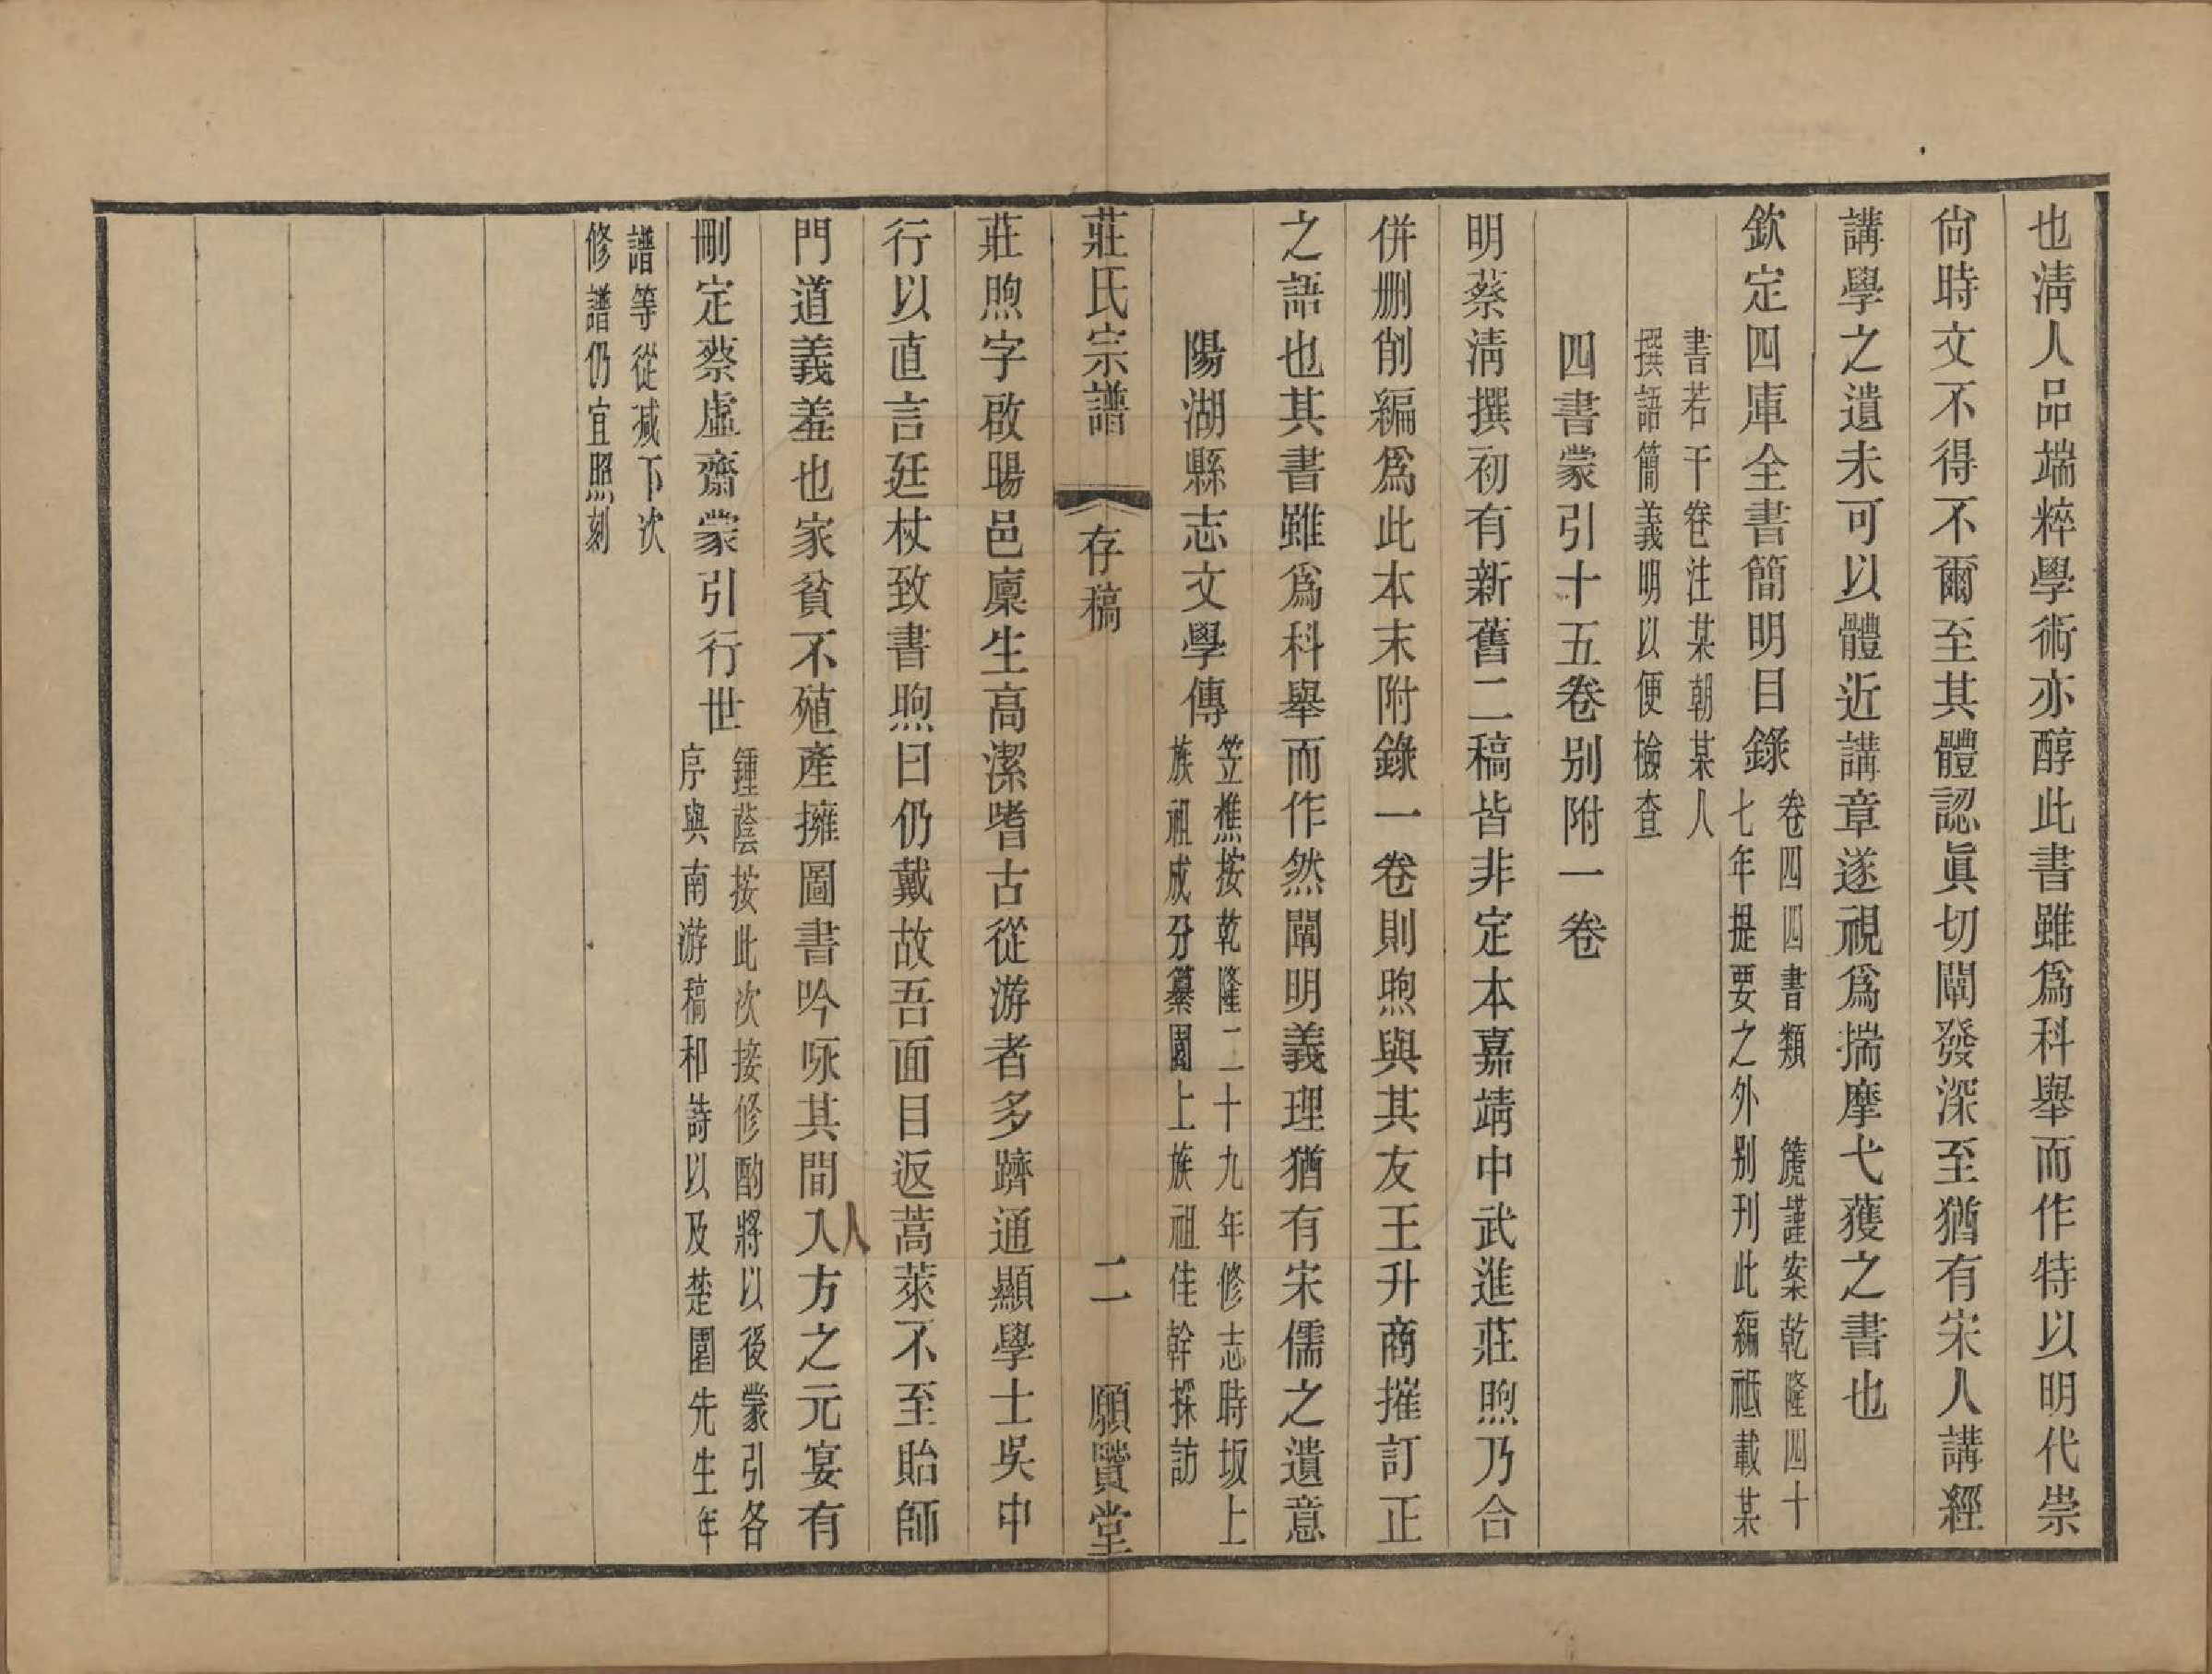 也清人品端粹學術亦醇此書雖爲科舉而作特以明代崇
尙時文不得不爾至其體認眞切闡發深至猶有宋人講經
講學之遺未可以體近講章遂視爲揣摩弋獲之書也
欽定四庫全書簡明目錄
卷四四書類 篪謹案乾隆四十
七年提要之外别刊此編祗載某
書若干卷注某朝某人
撰語簡義明以便檢查
四書蒙引十五卷别附一卷
明蔡清撰初有新舊二稿皆非定本嘉靖中武進莊煦乃合
併删削編爲此本末附錄一卷則煦與其友王升商摧訂正
之語也其書雖爲科舉而作然闡明義理猶有宋儒之遺意
陽湖縣志文學傳
笠樵按乾隆二十九年修志時坂上
族祖成分纂園上族祖佳幹採訪
莊氏宗譜 存稿 二 願賢堂
莊煦字啟暘邑廩生高潔嗜古從游者多躋通顯學士吳中
行以直言廷杖致書煦曰仍戴故吾面目返蒿萊不至貽師
門道義羞也家貧不殖產擁圖書吟咏其間入方之元宴有
人
刪定蔡虛齋蒙引行世
鍾蔭按此次接修酌將以後蒙引各
序與南游稿和詩以及楚圍先生年
譜等從減下次
修譜仍宜照刻